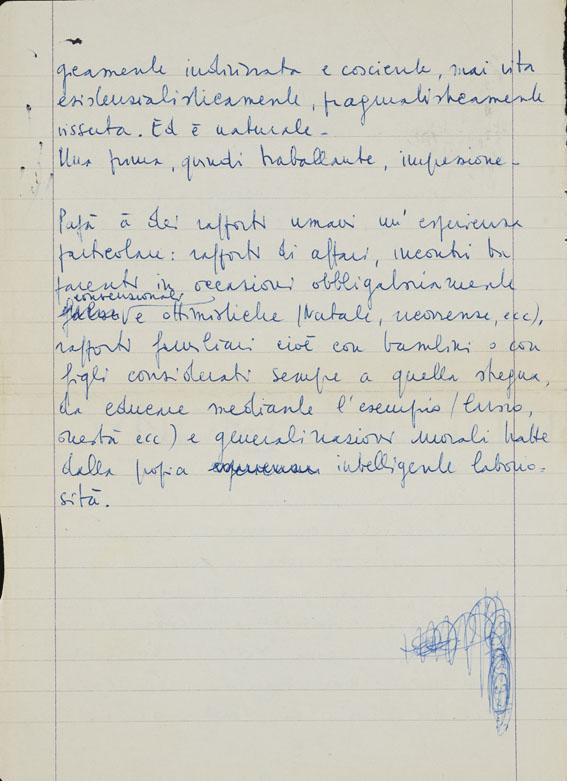 gicamente indirizzata e cosciente, mai vita
esistenzialisticamente, pragmatisticamente
vissuta. Ed è naturale -
Una prima, quindi traballante, impressione -
Papà à dei rapporti umani un' esperienza
particolare: rapporti di affari, incontri tra
parenti in occasioni obbligatoriamente
convenzionali
e ottimistiche (Natale, ricorrenze, ecc),
rapporti familiari cioè con bambini o con
figli considerati sempre a quella stregua,
da educare mediante l'esempio (
onestà ecc) e generalizzazioni morali tratte
dalla propia intelligente laborio-
sità.